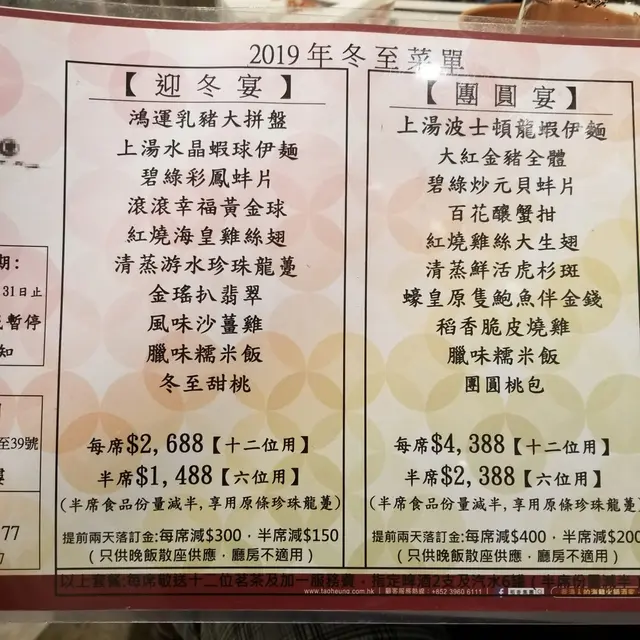 2019年冬至菜單
【迎冬宴】
鴻運乳豬大拼盤
上湯水晶蝦球伊麵
碧綠彩鳳蚌片
滾滾幸福黃金球
紅燒海皇雞絲翅
清蒸游水珍珠龍躉
金瑤扒翡翠
風味沙薑雞
臘味糯米飯
冬至甜桃
每席$2,688【十二位用】
半席$1,488【六位用】
(半席食品份量減半,享用原條珍珠龍躉)
提前兩天落訂金:每席減$300,半席減$150
(只供晚飯散座供應,廳房不適用)
【團圓宴】
上湯波士頓龍蝦伊麵
大紅金豬全體
碧綠炒元貝蚌片
百花釀蟹拑
紅燒雞絲大生翅
清蒸鮮活虎杉斑
蠔皇原隻鮑魚伴金錢
稻香脆皮燒雞
臘味糯米飯
團圓桃包
每席$4,388【十二位用】
半席$2,388【六位用】
(半席食品份量減半,享用原條珍珠龍躉)
提前兩天落訂金:每席減$400,半席減$200
(只供晚飯散座供應,廳房不適用)
以上套餐:每席敬送十二位茗茶及加一服務費,指定啤酒2支及汽水6罐(半席份量減半
www.taoheung.com.hk
顧客服務熱線:+852 3960 6111
期:
31日止
暫停
知
至39號
樓
77